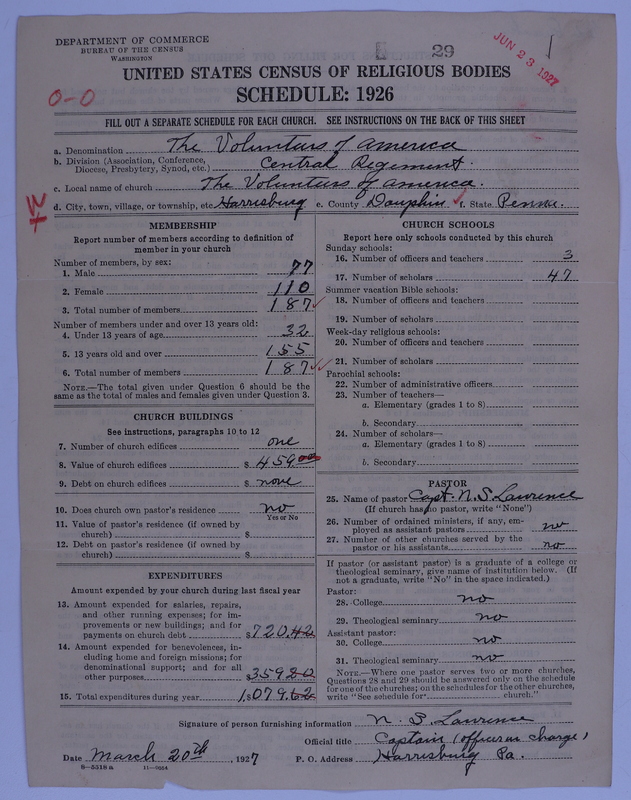 DEPARTMENT OF COMMERCE
BUREAU OF THE CENSUS
WASHINGTON
29
JUN 23 1927
UNITED STATES CENSUS OF RELIGIOUS BODIES
SCHEDULE: 1926
0-0
FILL OUT A SEPARATE SCHEDULE FOR EACH CHURCH. SEE INSTRUCTIONS ON THE BACK OF THIS SHEET
a. Denomination The Volunteers of America
b. Division (Association, Conference, Diocese, Presbytery, Synod, etc.) Central Regement.
c. Local name of church The Volunteers of America.
d. City, town, village, or township, etc. Harrisburg e. County Dauphin f. State Penna.
MEMBERSHIP
Report number of members according to definition of
member in your church
Number of members, by sex:
1. Male 77
2. Female 110
3. Total number of members 187
Number of members under and over 13 years old:
4. Under 13 years of age 32
5. 13 years old and over 155
6. Total number of members 187
NOTE.—The total given under Question 6 should be
same as the total of males and females given under Question 3.
CHURCH BUILDINGS
See instructions, paragraphs 10 to 12
7. Number of church edifices one
8. Value of church edifices $ 45900
9. Debt on church edifices $ none
10. Does church own pastor's residence? no
Yes or No
11. Value of pastor's residence (if owned by
church) $
12. Debt on pastor's residence (if owned by
church) $
EXPENDITURES
Amount expended by your church during last fiscal year
13. Amount expended for salaries, repairs,
and other running expenses; for im-
provements or new buildings; and for
payments on church debt $720.42
14. Amount expended for benevolences, in-
cluding home and foreign missions; for
denominational support; and for all
other purposes $35920
15. Total expenditures during year 1,079.62
CHURCH SCHOOLS
Report here only schools conducted by this church
Sunday schools:
16. Number of officers and teachers 3
17. Number of scholars 47
Summer vacation Bible schools:
18. Number of officers and teachers
19. Number of scholars
Week-day religious schools:
20. Number of officers and teachers
21. Number of scholars
Parochial schools:
22. Number of administrative officers
23. Number of teachers—
a. Elementary (grades 1 to 8)
b. Secondary
24. Number of scholars—
a. Elementary (grades 1 to 8)
b. Secondary
PASTOR
25. Name of pastor Capt. N. S. Lawrence
(If church has no pastor, write "None")
26. Number of ordained ministers, if any, em-
ployed as assistant pastors no
27. Number of other churches served by the
pastor or his assistants no
If pastor (or assistant pastor) is a graduate of a college or
theological seminary, give name of institution below. (If
not a graduate, write "No" in the space indicated.)
Pastor:
28. College no
29. Theological seminary no
Assistant pastor:
30. College no
31. Theological seminary no
NOTE.—Where one pastor serves two or more churches,
Questions 28 and 29 should be answered only on the schedule
for one of the churches; on the schedules for the other churches,
write "See schedule for church."
Signature of person furnishing information N. S. Lawrence
Official title Captain (officer in charge)
Date March 20th, 1927 P. O. Address Harrisburg Pa.
8—5518 a